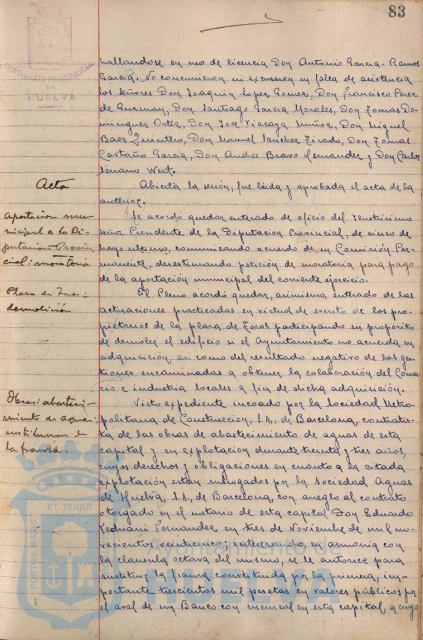 83
AYUNTAMIENTO CONSTITUCIONAL
HUELVA
hallandose en uso de licencia Don Antonio Garcia-Ramos
Garcia. No concurrieron ni excusaron su falta de asistencia
los señores Don Joaquin Lopez Gomez, Don Francisco Perez
de Guzman, Don Santiago Garcia Morales, Don Tomas Do-
minguez Ortiz, Don Jose Vizcaya Muñoz, Don Miguel
Baez Quintero, Don Manuel Sanchez Tirado, Don Tomas
Castaño Garcia, Don Andres Bravo Hernandez y Don Carlos
Serrano West.
Acta
Abierta la sesión, fue leida y aprobada el acta de la
anterior.
Aportacion mu-
nicipal a la Di-
putacion Provin-
cial: moratoria
Se acordo quedar enterado de oficio del Ilustrisimo
señor Presidente de la Diputacion Provincial, de cinco de
mayo ultimo, comunicando acuerdo de su Comisión Per-
manente, desestimando petición de moratoria para pago
de la aportación municipal del corriente ejercicio.
Plaza de Toros:
demolición
El Pleno acordó quedar, asimismo, enterado de las
actuaciones practicadas en virtud de escrito de los pro-
pietarios de la plaza de Toros participando su propósito
de demoler el edificio si el Ayuntamiento no acuerda su
adquisición, asi como del resultado negativo de las ges-
tiones encaminadas a obtener la colaboración del Comer-
cio e industria locales a fin de dicha adquisición.
Obras abasteci-
miento de aguas:
sustitucion de
la fianza.
Visto expediente incoado por la Sociedad Metro-
politana de Construccion, S.A., de Barcelona, contratis-
ta de las obras de abastecimiento de aguas de esta
capital y su explotación durante treinta y tres años,
cuyos derechos y obligaciones en cuanto a la citada
explotación estan subrogados por la Sociedad Aguas
de Huelva, S.A., de Barcelona, con arreglo al contrato
otorgado en el notario de esta capital Don Eduardo
Fernandez, en tres de Noviembre de mil no-
vecientos veinticinco, interesando, en armonia con
la clausula octava del mismo, se le autorice para
sustituir la fianza constituida por la primera, im-
portante trescientas mil pesetas en valores públicos por
el aval de un Banco con sucursal en esta capital, a cuyo
ET TERRAE
PORTUS MARIS
Ayuntamiento de
HUELVA